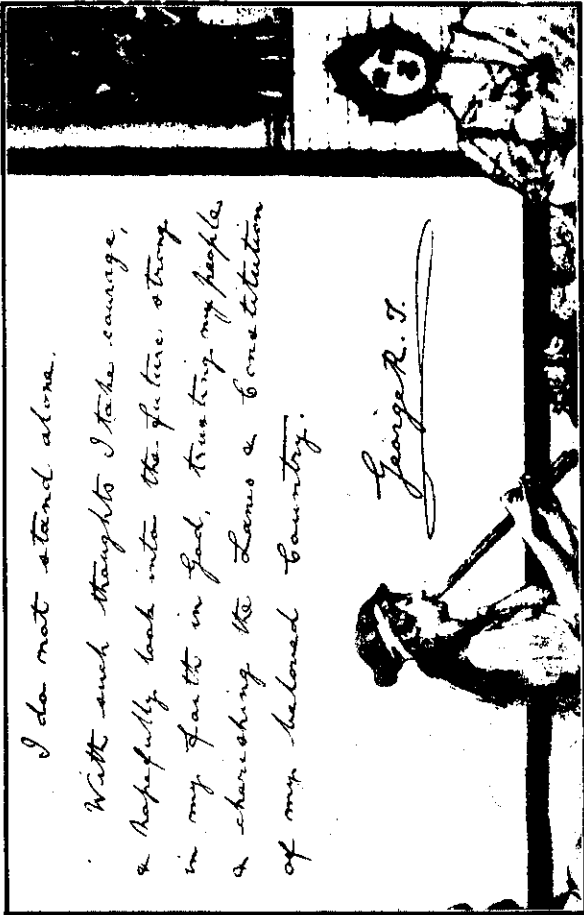 I do not stand alone.
With such thoughts I take courage,
& hopefully look into the future, strong
in my faith in God, trusting my people
& cherishing the Laws & Constitution
of my beloved Country.
George R. I.